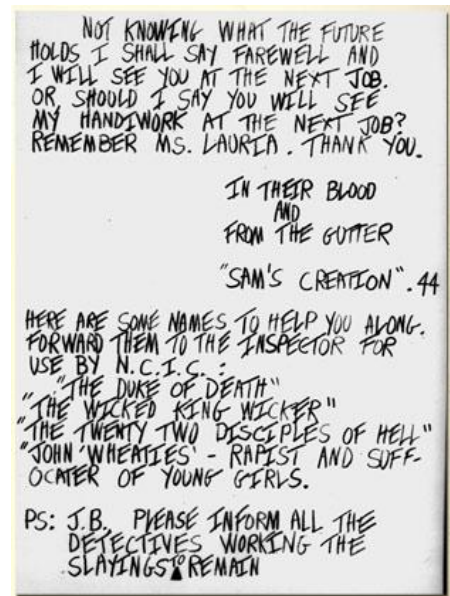 NOT KNOWING WHAT THE FUTURE
HOLDS I SHALL SAY FAREWELL AND
I WILL SEE YOU AT THE NEXT JOB.
OR, SHOULD I SAY YOU WILL SEE
MY HANDIWORK AT THE NEXT JOB?
REMEMBER MS. LAURIA. THANK YOU.
IN THEIR BLOOD
AND
FROM THE GUTTER
"SAM'S CREATION" .44
HERE ARE SOME NAMES TO HELP YOU ALONG.
FORWARD THEM TO THE INSPECTOR FOR
USE BY N.C.I.C. :
"THE DUKE OF DEATH"
"THE WICKED KING WICKER"
"THE TWENTY TWO DISCIPLES OF HELL"
"JOHN 'WHEATIES' - RAPIST AND SUFF-
OCATER OF YOUNG GIRLS.
PS: J.B. PLEASE INFORM ALL THE
DETECTIVES WORKING THE
SLAYINGS TO REMAIN